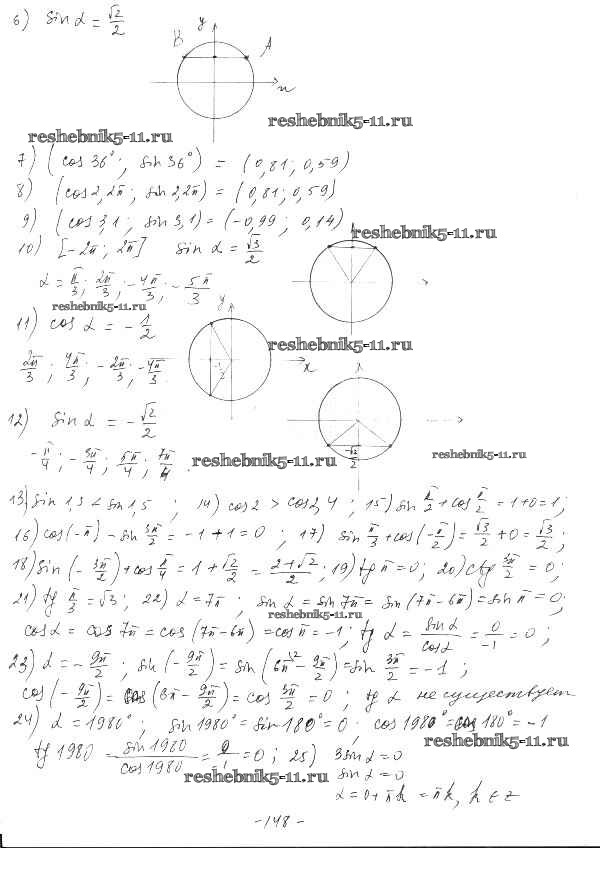 6) sin α = √2/2
y
B A
x
reshebnik5-11.ru
reshebnik5-11.ru
7) (cos 36°; sin 36°) = (0,81; 0,59)
8) (cos 2,2π; sin 2,2π) = (0,81; 0,59)
9) (cos 3,1; sin 3,1) = (-0,99; 0,14)
reshebnik5-11.ru
10) [-2π; 2π] sin α = √3/2
α = π/3; 2π/3; -4π/3; -5π/3
reshebnik5-11.ru
y
11) cos α = -1/2
reshebnik5-11.ru
2π/3; 4π/3; -2π/3; -4π/3.
-1/2
x
12) sin α = -√2/2
-π/4; -3π/4; 5π/4; 7π/4.
-√2/2
reshebnik5-11.ru
reshebnik5-11.ru
13) sin 1,3 < sin 1,5; 14) cos 2 > cos 2,4; 15) sin π/2 + cos π/2 = 1+0=1;
16) cos(-π) - sin 3π/2 = -1+1=0; 17) sin π/3 + cos(-π/2) = √3/2 + 0 = √3/2;
18) sin(-3π/2) + cos π/4 = 1 + √2/2 = 2+√2/2; 19) tg π = 0; 20) ctg 3π/2 = 0;
21) tg π/3 = √3; 22) α = 7π; sin α = sin 7π = sin(7π-6π) = sin π = 0;
reshebnik5-11.ru
cos α = cos 7π = cos(7π-6π) = cos π = -1; tg α = sin α/cos α = 0/-1 = 0;
23) α = -9π/2; sin(-9π/2) = sin(6π - 9π/2) = sin 3π/2 = -1;
cos(-9π/2) = cos(6π - 9π/2) = cos 3π/2 = 0; tg α не существует
24) α = 1980°; sin 1980° = sin 180° = 0; cos 1980° = cos 180° = -1
reshebnik5-11.ru
tg 1980 = sin 1980/cos 1980 = 0/-1 = 0; 25) 3 sin α = 0
reshebnik5-11.ru
sin α = 0
α = 0 + πk = πk, k ∈ z
-148-